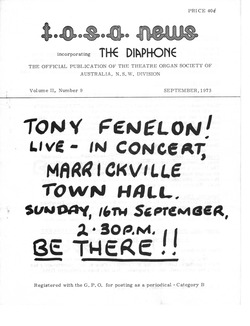 PRICE 40¢
t.o.s.a. news
incorporating THE DIAPHONE
THE OFFICIAL PUBLICATION OF THE THEATRE ORGAN SOCIETY OF
AUSTRALIA, N.S.W. DIVISION
Volume II, Number 9 SEPTEMBER, 1973
TONY FENELON!
LIVE - IN CONCERT,
MARRICKVILLE
TOWN HALL.
SUNDAY, 16TH SEPTEMBER,
2.30P.M.
BE THERE!!
Registered with the G.P.O. for posting as a periodical - Category B